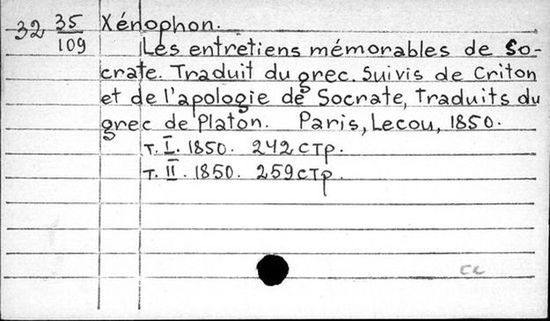 32 35/109 Xénophon.
Les entretiens mémorables de So-
crate. Traduit du grec. Suivis de Criton
et de l'apologie de Socrate, Traduits du
grec de Platon. Paris, Lecou, 1850.
т. I. 1850. 242 стр.
т. II. 1850. 259 стр.